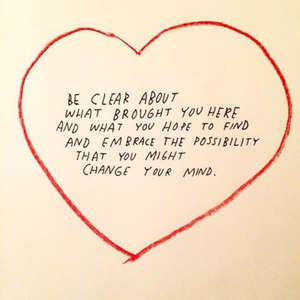 BE CLEAR ABOUT
WHAT BROUGHT YOU HERE
AND WHAT YOU HOPE TO FIND
AND EMBRACE THE POSSIBILITY
THAT YOU MIGHT
CHANGE YOUR MIND.